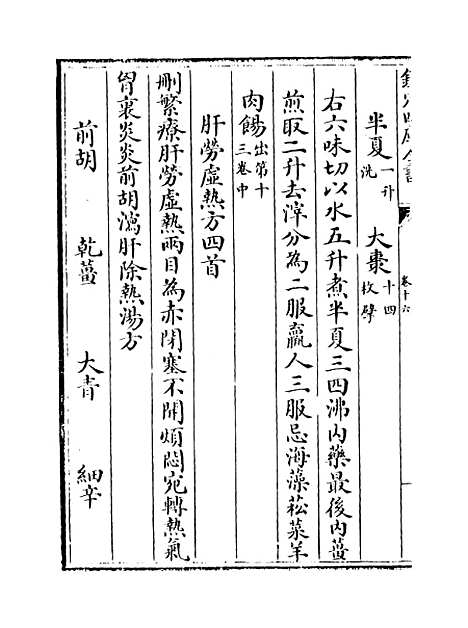 欽定四庫全書
卷十六
半夏一升洗 大棗十四枚擘
右六味切以水五升煮半夏三四沸內藥最後內薑
煎取二升去滓分為二服羸人三服忌海藻菘菜羊
肉餳出第十三卷中
肝勞虛熱方四首
刪繁療肝勞虛熱兩目為赤閉塞不開煩悶宛轉熱氣
胷裏炎炎前胡瀉肝除熱湯方
前胡 乾薑 大青 細辛